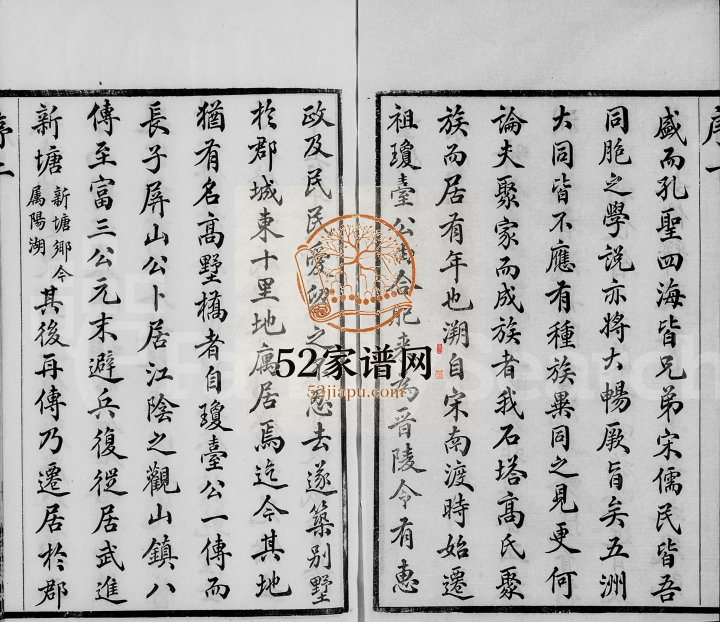 序一
盛而孔聖四海皆兄弟宋儒民皆吾
同胞之學說亦將大暢厥旨矣五洲
大同皆不應有種族異同之見更何
論夫聚家而成族者我石塔高氏聚
族而居有年也溯自宋南渡時始遷
祖瓊臺公由合肥來為晉陵令有惠
政及民民愛留之不忍去遂築别墅
於郡城東十里地寓居焉迄今其地
猶有名高墅橋者自瓊臺公一傳而
長子屏山公卜居江陰之觀山鎮八
傳至富三公元末避兵復從居武進
新塘新塘鄉今屬陽湖其後再傳乃遷居於郡
序二
52家谱网
52jiapu.com